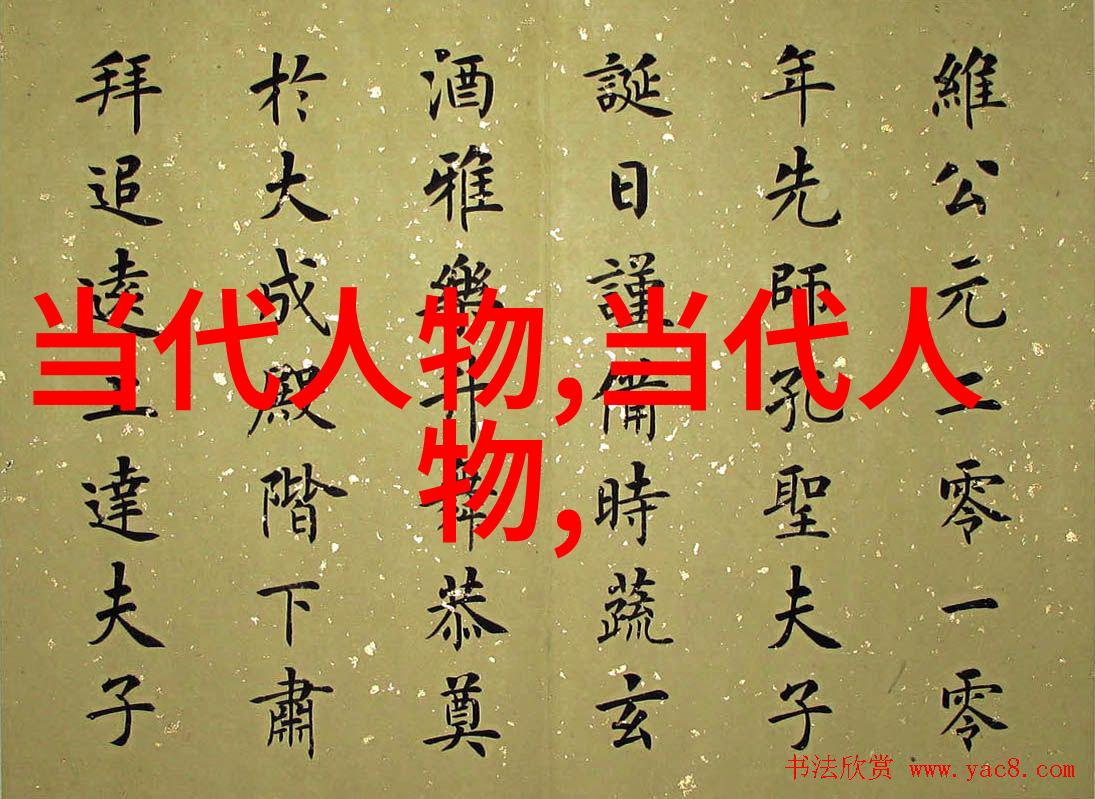 維公元二零一零
年先師孔聖夫子
誕日謹備時蔬玄
酒雅樂升舞恭奠
於大成殿階下肅
拜追逺上達夫子
当代人物,当代人
物,
书法欣赏 www.yac8.com